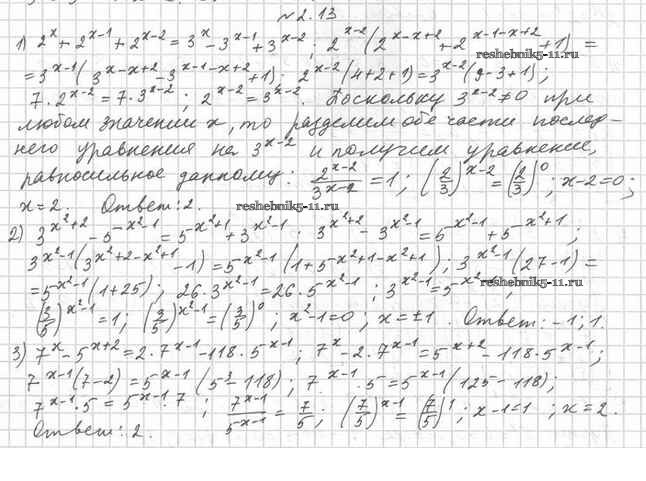 №2.13
1) 2^x + 2^{x-1} + 2^{x-2} = 3^x - 3^{x-1} + 3^{x-2} ; 2^{x-2}(2^{x-x+2} + 2^{x-1-x+2} + 1) =
reshebnik5-11.ru
= 3^{x-1}(3^{x-x+2} - 3^{x-1-x+2} + 1) ; 2^{x-2}(4+2+1) = 3^{x-2}(9-3+1) ;
7·2^{x-2} = 7·3^{x-2} ; 2^{x-2} = 3^{x-2}. Поскольку 3^{x-2} ≠ 0 при
любом значении x, то разделим обе части послед-
него уравнения на 3^{x-2} и получим уравнение,
равносильное данному: 2^{x-2}/3^{x-2} = 1 ; (2/3)^{x-2} = (2/3)^0 ; x-2=0 ;
x=2. Ответ: 2.
reshebnik5-11.ru
2) 3^{x²+2} - 5^{x²-1} = 5^{x²+1} + 3^{x²-1} ; 3^{x²+2} - 3^{x²-1} = 5^{x²-1} + 5^{x²+1} ;
3^{x²-1}(3^{x²+2-x²+1} - 1) = 5^{x²-1}(1 + 5^{x²+1-x²+1}) ; 3^{x²-1}(27-1) =
reshebnik5-11.ru
= 5^{x²-1}(1+25) ; 26·3^{x²-1} = 26·5^{x²-1} ; 3^{x²-1} = 5^{x²-1} ;
(3/5)^{x²-1} = 1 ; (3/5)^{x²-1} = (3/5)^0 ; x²-1=0 ; x=±1. Ответ: -1; 1.
3) 7^x - 5^{x+2} = 2·7^{x-1} - 118·5^{x-1} ; 7^x - 2·7^{x-1} = 5^{x+2} - 118·5^{x-1} ;
7^{x-1}(7-2) = 5^{x-1}(5³-118) ; 7^{x-1}·5 = 5^{x-1}(125-118) ;
7^{x-1}·5 = 5^{x-1}·7 ; 7^{x-1}/5^{x-1} = 7/5 ; (7/5)^{x-1} = (7/5)^1 ; x-1=1 ; x=2.
Ответ: 2.